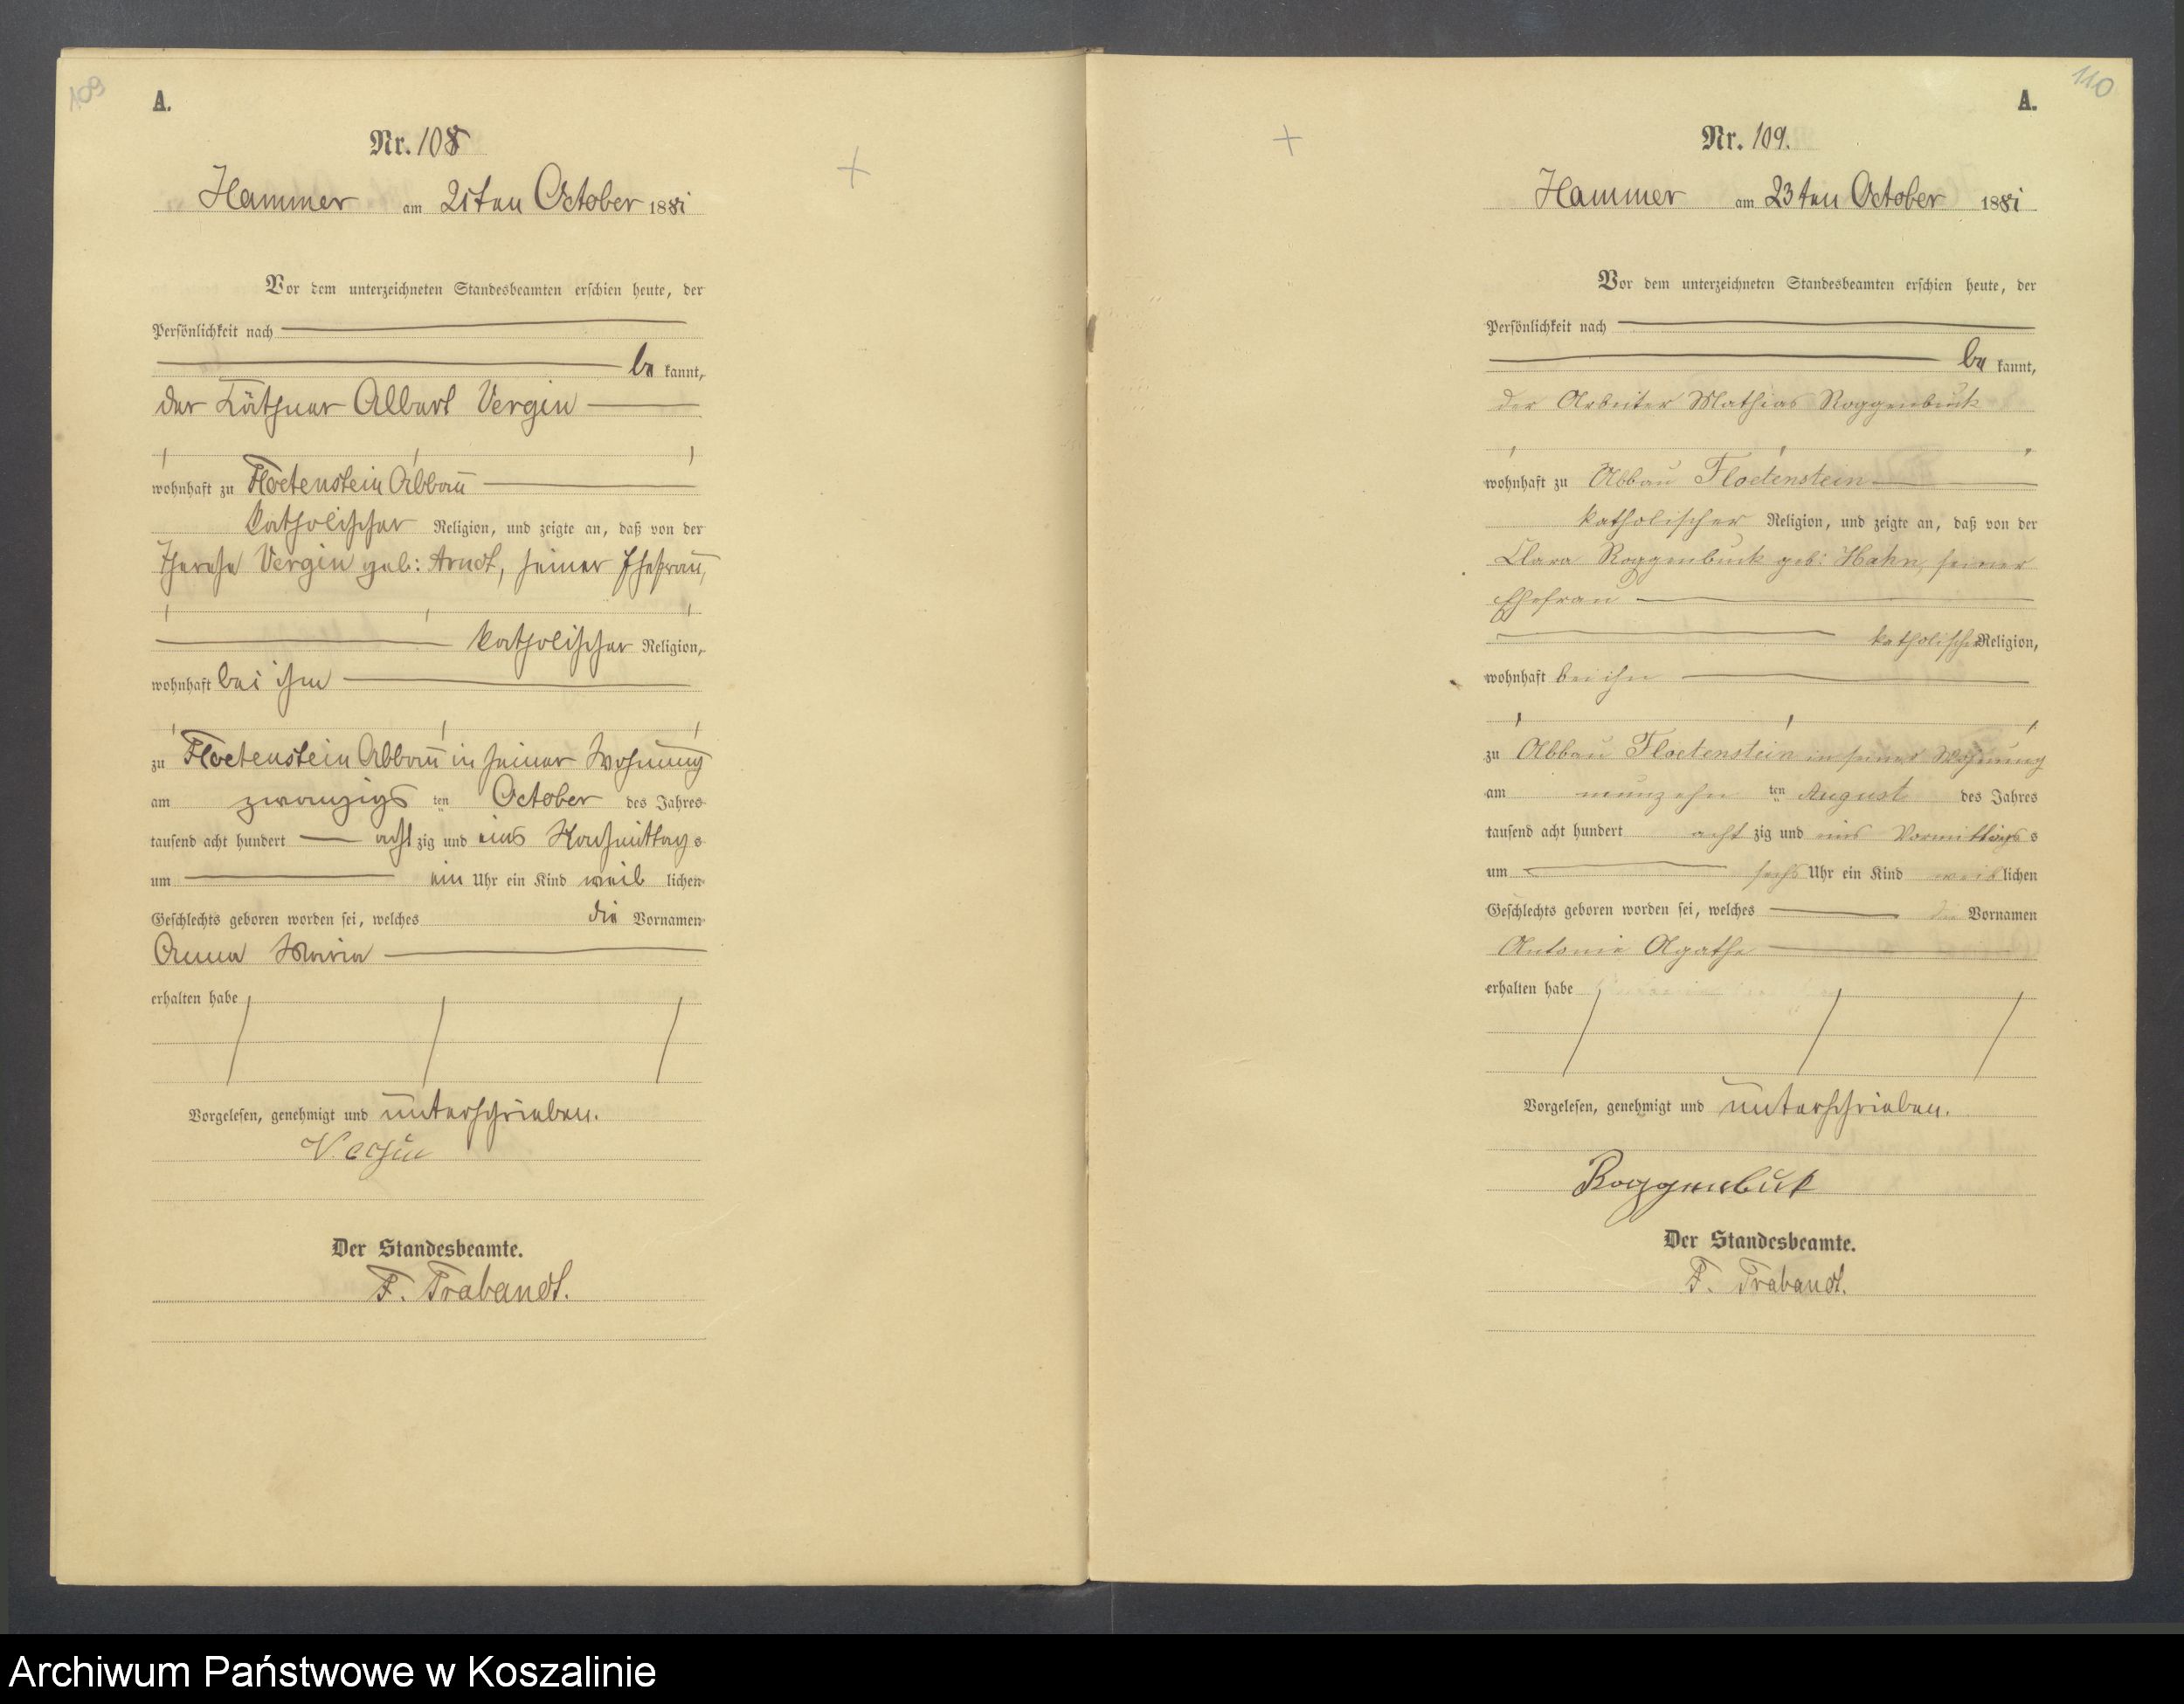 109
A.
Nr. 108
Hammer am 21ten October 1881
Vor dem unterzeichneten Standesbeamten erschien heute, der
Persönlichkeit nach
be kannt,
der Käthner Albert Vergin
wohnhaft zu Floetenstein Abbau
katholischer Religion, und zeigte an, daß von der
Therese Vergin geb: Arndt, seiner Ehefrau,
katholischer Religion,
wohnhaft bei ihm
zu Floetenstein Abbau in seiner Wohnung
am zwanzigs ten October des Jahres
tausend acht hundert acht zig und eins Nachmittag s
um ein Uhr ein Kind weib lichen
Geschlechts geboren worden sei, welches die Vornamen
Anna Maria
erhalten habe
Vorgelesen, genehmigt und unterschrieben.
Vergin
Der Standesbeamte.
F. Trabandt.
110
A.
Nr. 109.
Hammer am 23ten October 1881
Vor dem unterzeichneten Standesbeamten erschien heute, der
Persönlichkeit nach
be kannt,
der Arbeiter Mathias Roggenbuck
wohnhaft zu Abbau Floetenstein
katholischer Religion, und zeigte an, daß von der
Clara Roggenbuck geb: Hahn, seiner
Ehefrau
katholischer Religion,
wohnhaft bei ihm
zu Abbau Floetenstein in seiner Wohnung
am neunzehn ten August des Jahres
tausend acht hundert acht zig und eins Vormittags s
um sechs Uhr ein Kind weib lichen
Geschlechts geboren worden sei, welches die Vornamen
Antonie Agathe
erhalten habe
Vorgelesen, genehmigt und unterschrieben.
Roggenbuk
Der Standesbeamte.
F. Trabandt.
Archiwum Państwowe w Koszalinie